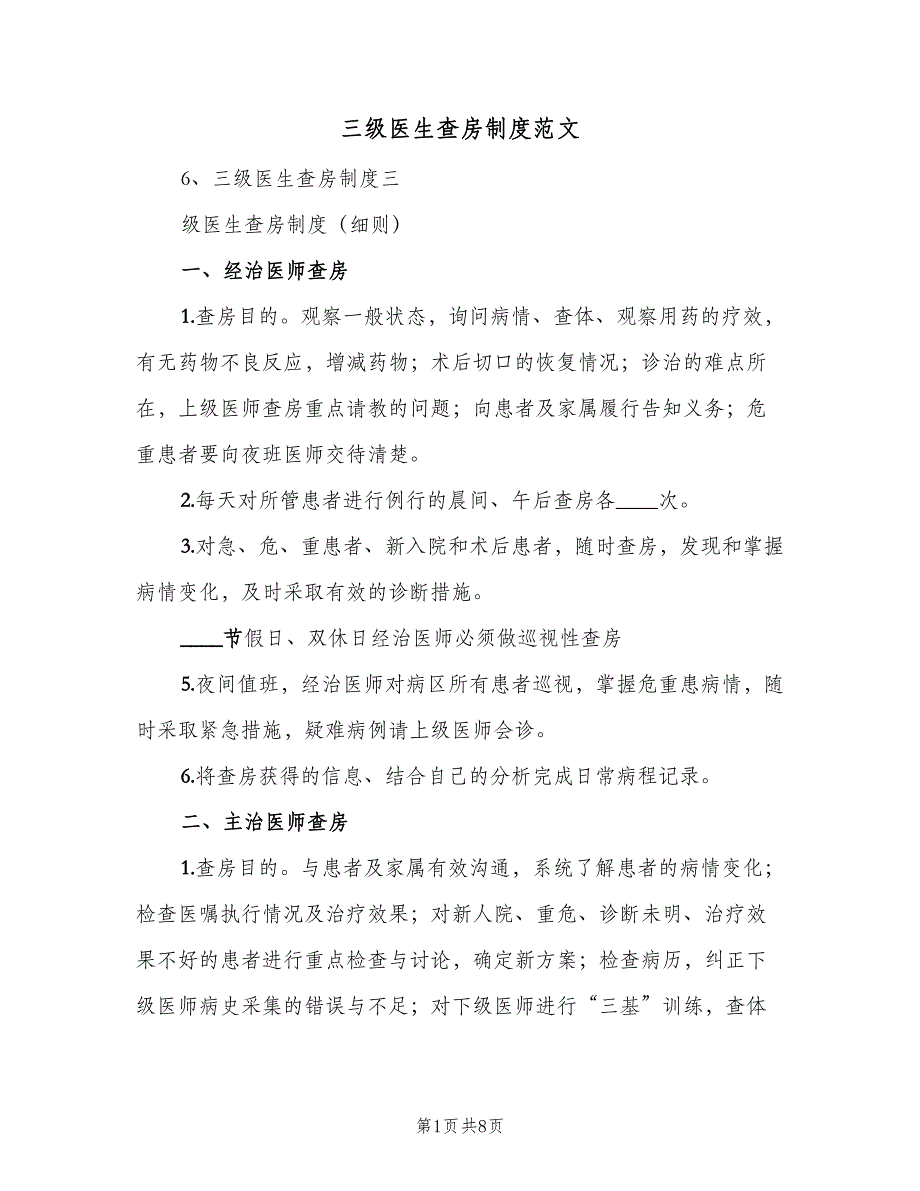 三级医生查房制度范文
6、三级医生查房制度三
级医生查房制度（细则）
一、经治医师查房
1.查房目的。观察一般状态，询问病情、查体、观察用药的疗效，
有无药物不良反应，增减药物；术后切口的恢复情况；诊治的难点所
在，上级医师查房重点请教的问题；向患者及家属履行告知义务；危
重患者要向夜班医师交待清楚。
2.每天对所管患者进行例行的晨间、午后查房各____次。
3.对急、危、重患者、新入院和术后患者，随时查房，发现和掌握
病情变化，及时采取有效的诊断措施。
____节假日、双休日经治医师必须做巡视性查房
5.夜间值班，经治医师对病区所有患者巡视，掌握危重患病情，随
时采取紧急措施，疑难病例请上级医师会诊。
6.将查房获得的信息、结合自己的分析完成日常病程记录。
二、主治医师查房
1.查房目的。与患者及家属有效沟通，系统了解患者的病情变化；
检查医嘱执行情况及治疗效果；对新人院、重危、诊断未明、治疗效
果不好的患者进行重点检查与讨论，确定新方案；检查病历，纠正下
级医师病史采集的错误与不足；对下级医师进行“三基”训练，查体
第1页共8页